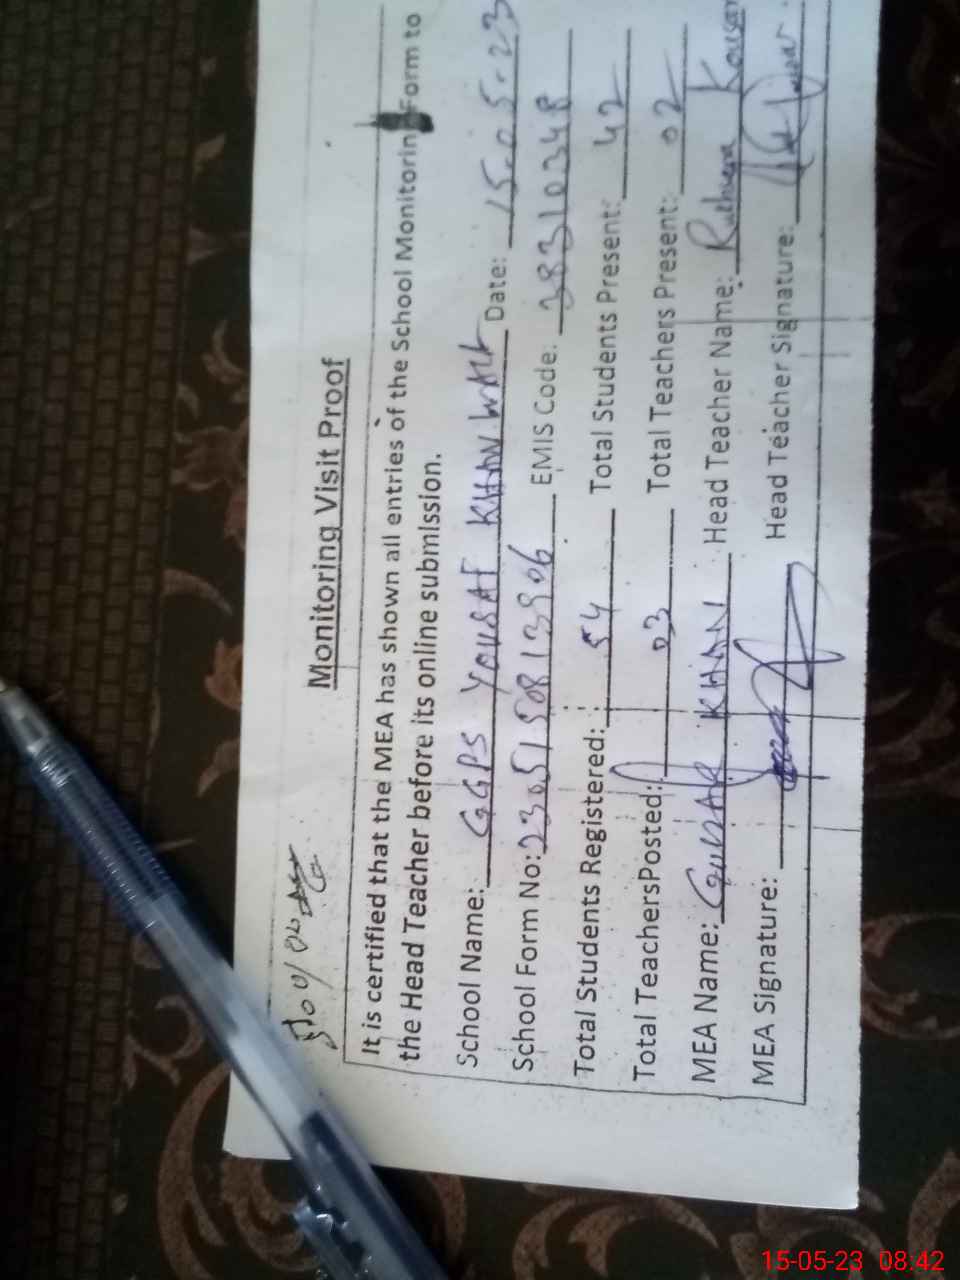 Monitoring Visit Proof
It is certified that the MEA has shown all entries of the School Monitoring Form to
the Head Teacher before its online submission.
School Name: GGPS YOUSAF KHAN WALI Date: 15-05-23
School Form No: 2305150813906 EMIS Code: 38310348
Total Students Registered: 54 Total Students Present: 42
Total TeachersPosted: 03 Total Teachers Present: 02
MEA Name: GULLAB KHAN Head Teacher Name: Kousar
MEA Signature: Head Teacher Signature:
15-05-23 08:42